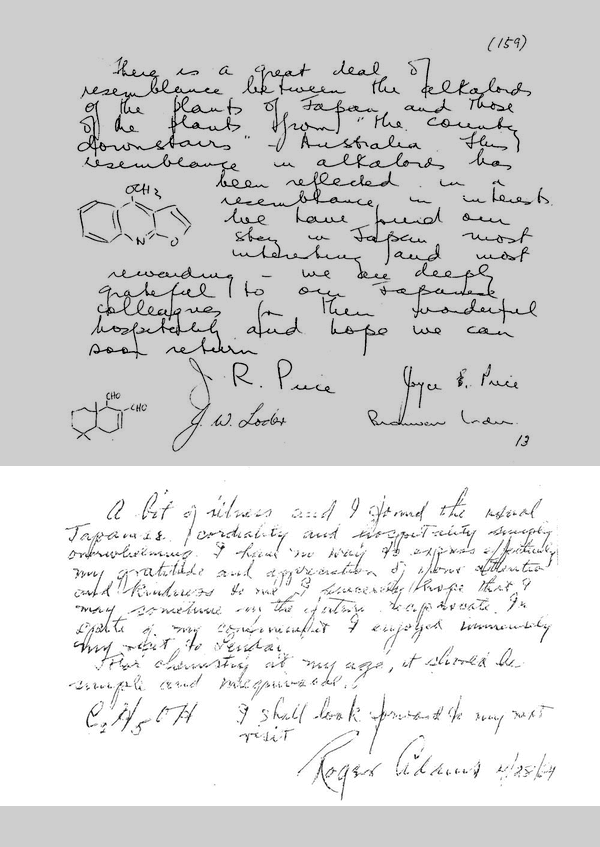 (159)
There is a great deal of
resemblance between the alkaloids
of the plants of Japan and those
of the plants from "the country
downstairs" - Australia. This
resemblance in alkaloids has
been reflected in a
resemblance in interests.
We have found our
stay in Japan most
interesting and most
rewarding - we are deeply
grateful to our Japanese
colleagues for their wonderful
hospitality and hope we can
soon return
OCH3
N O
J. R. Price Joyce E. Price
CHO
CHO
J. W. Loder
13
A bit of illness and I found the usual
Japanese cordiality and hospitality simply
overwhelming. I have no way to express effectively
my gratitude and appreciation of your attention
and kindness to me. I sincerely hope that I
may sometime in the future reciprocate. In
spite of my confinement I enjoyed immensely
my visit to Sendai.
For chemistry at my age, it should be
simple and
C2H5OH I shall look forward to my next
visit
Roger Adams 4/28/64